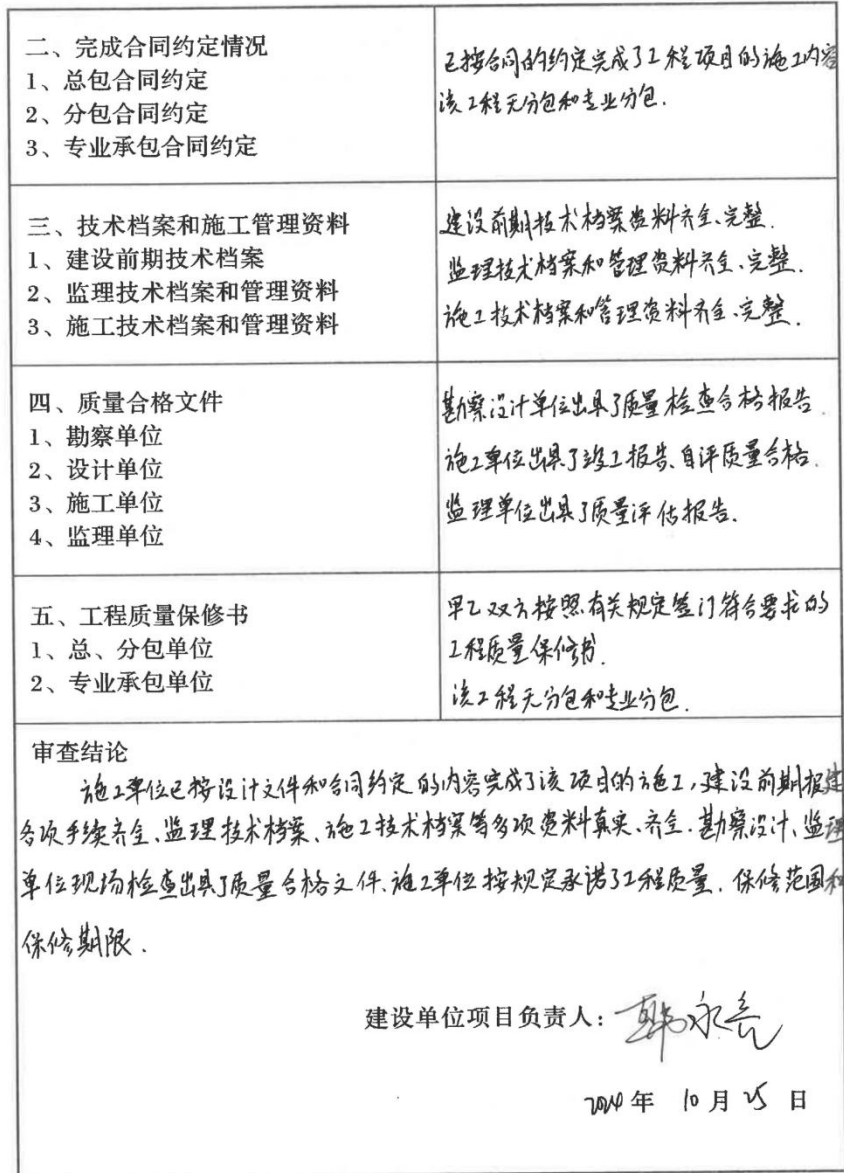 二、完成合同约定情况
1、总包合同约定
2、分包合同约定
3、专业承包合同约定
已按合同的约定完成了工程项目的施工内容
该工程无分包和专业分包.
三、技术档案和施工管理资料
1、建设前期技术档案
2、监理技术档案和管理资料
3、施工技术档案和管理资料
建设前期技术档案资料齐全、完整.
监理技术档案和管理资料齐全、完整.
施工技术档案和管理资料齐全、完整.
四、质量合格文件
1、勘察单位
2、设计单位
3、施工单位
4、监理单位
勘察设计单位出具了质量检查合格报告.
施工单位出具了竣工报告、自评质量合格.
监理单位出具了质量评估报告.
五、工程质量保修书
1、总、分包单位
2、专业承包单位
甲乙双方按照有关规定签订符合要求的
工程质量保修书.
该工程无分包和专业分包.
审查结论
施工单位已按设计文件和合同约定的内容完成了该项目的施工,建设前期报建
各项手续齐全、监理技术档案、施工技术档案等多项资料真实、齐全.勘察设计、监理
单位现场检查出具了质量合格文件、施工单位按规定承诺了工程质量.保修范围和
保修期限.
建设单位项目负责人:韩永亮
2024年 10月25日